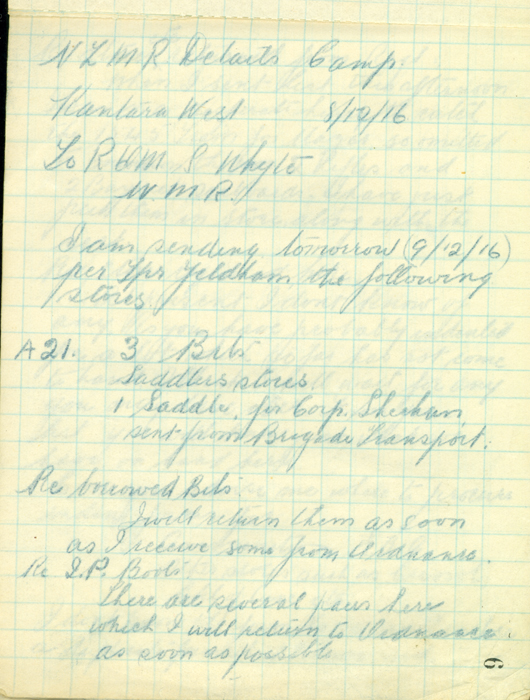 N Z M R Details Camp.
Kantara West 8/12/16
To R Q M S Whyte
W. M. R.
I am sending tomorrow (9/12/16)
per Tpr Yeldham the following
stores.
A 21. 3 Bits
Saddlers stores
1 Saddle, for Corp.
sent from Brigade Transport.
Re borrowed Bits.
I will return them as soon
as I receive some from Ordnance.
Re Boots.
there are several pairs here
which I will return to Ordnance
as soon as possible
6